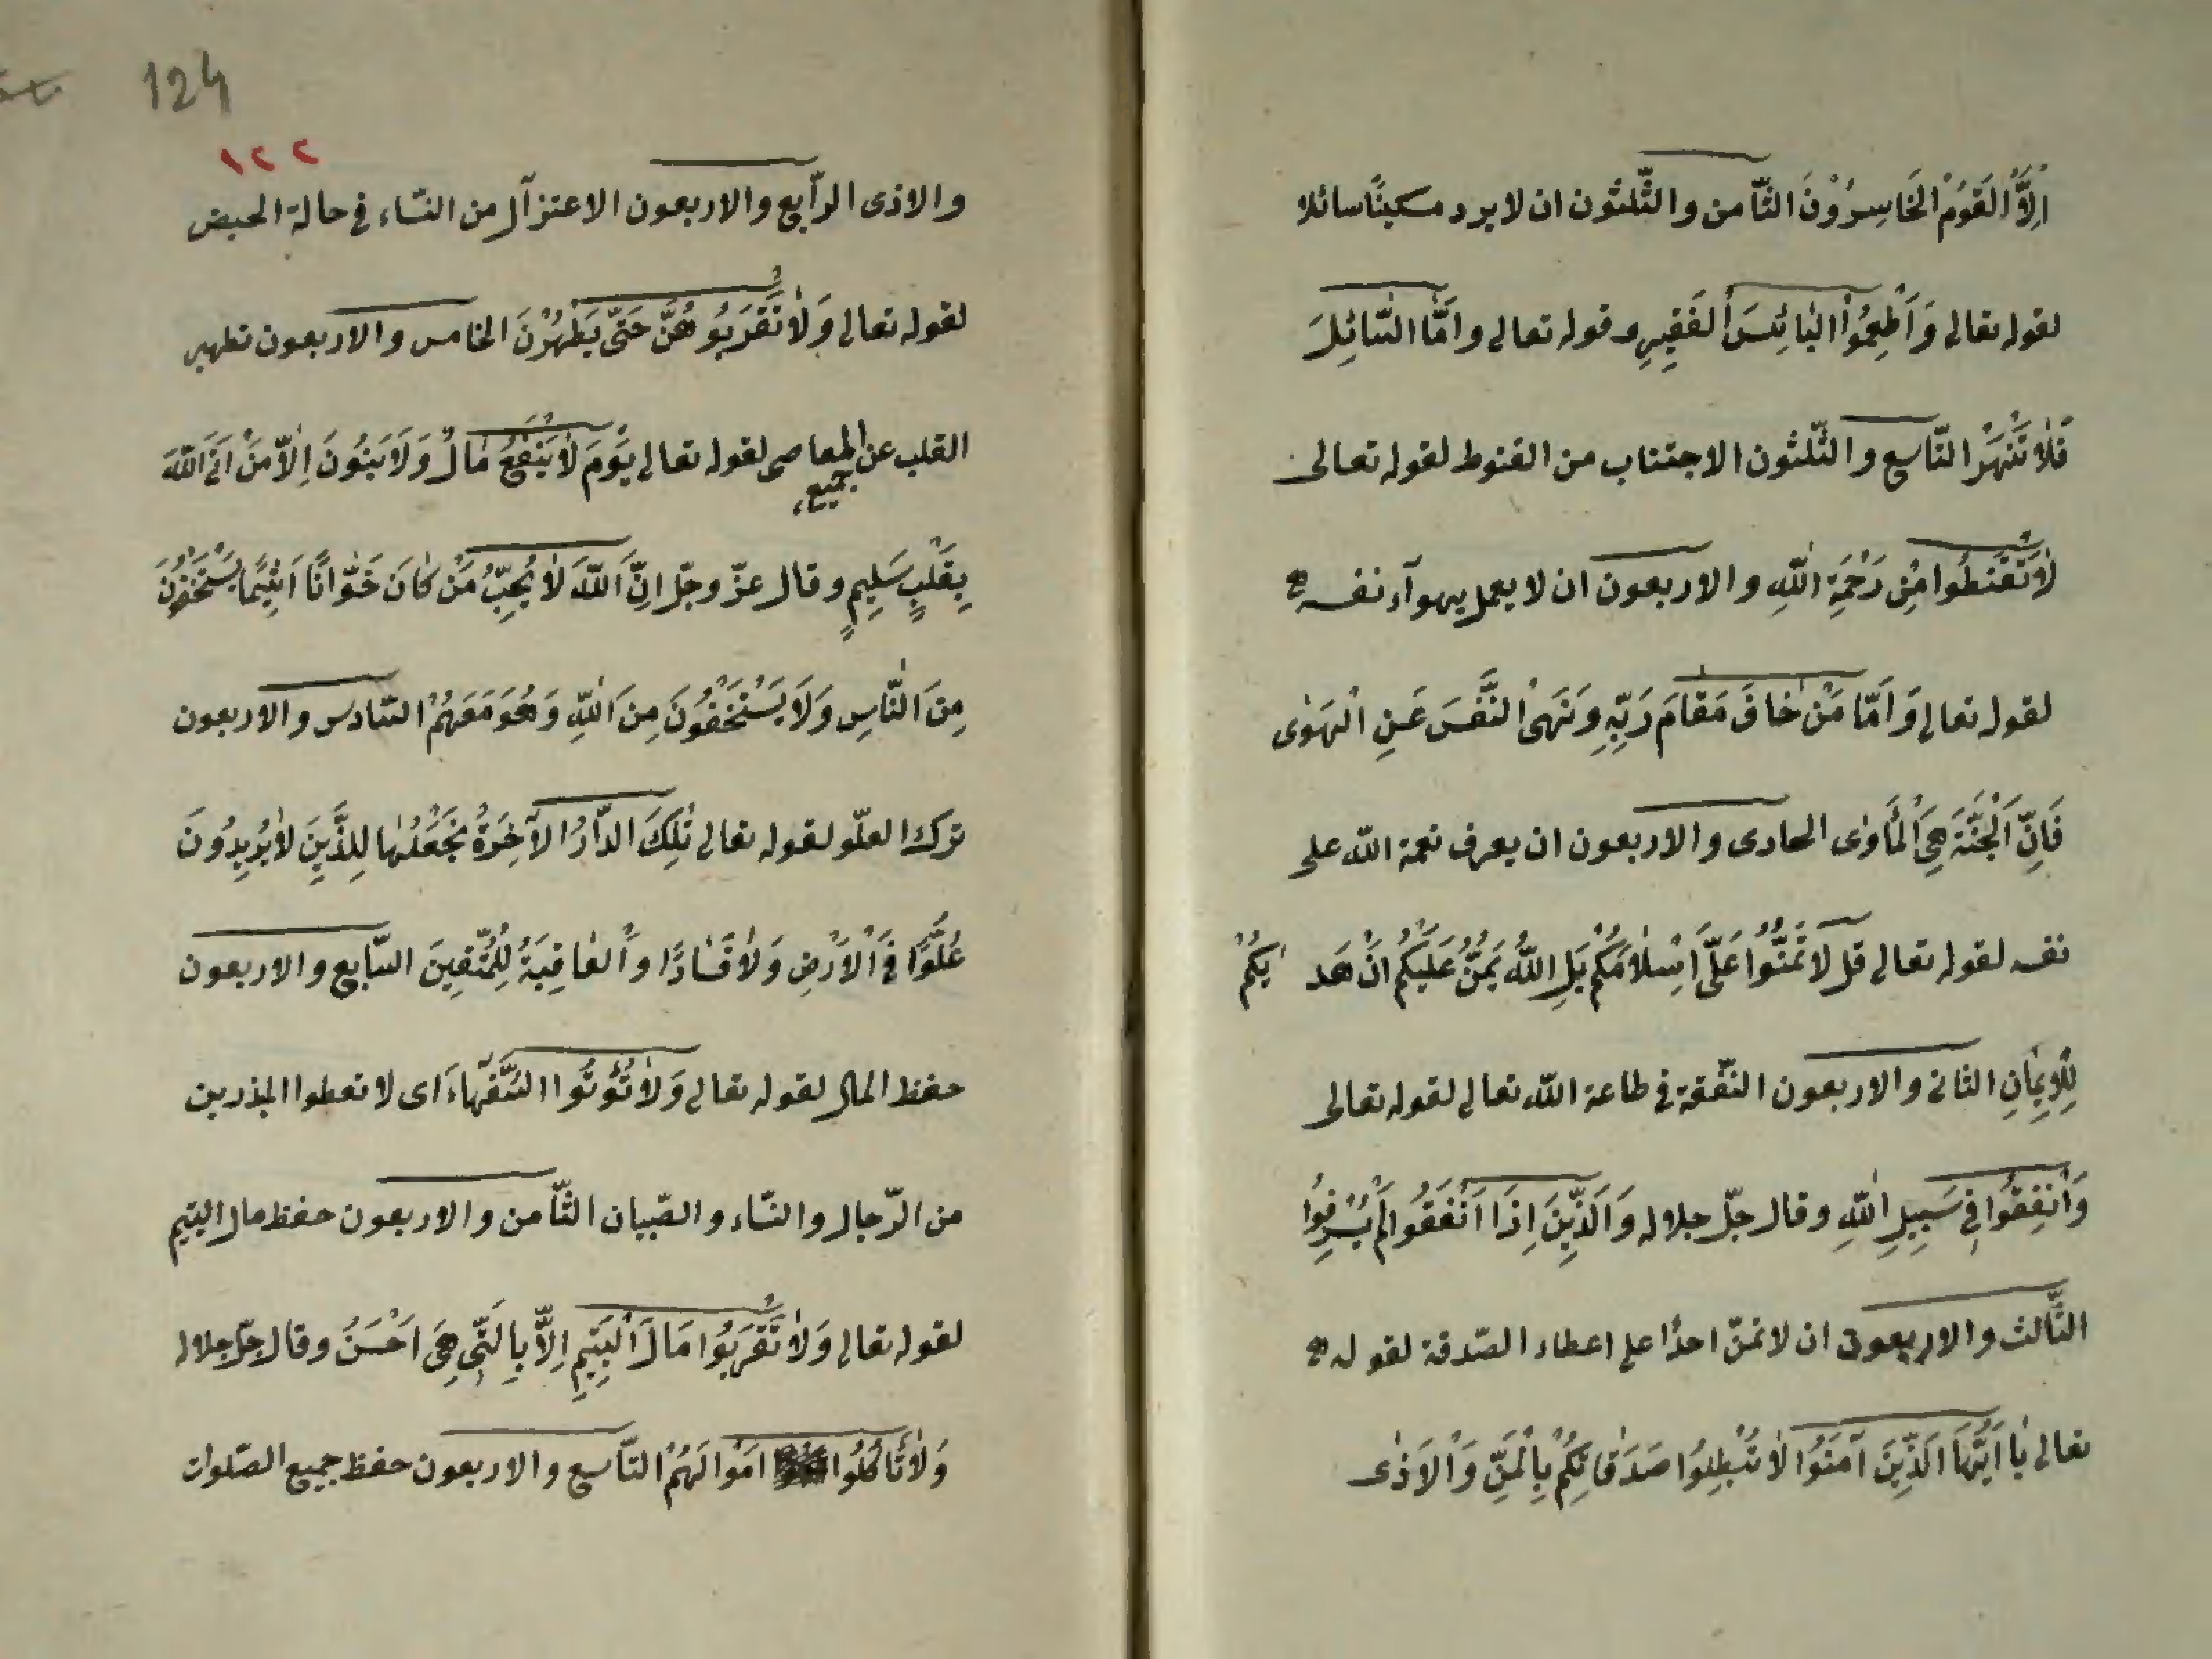 اِلَّا الْقَوْمُ الْخَاسِرُوْنَ الثّامن والثّلثون ان لا يرد مسكينًا سائلا
لقوله تعالى وَاَطْعِمُوا الْبَائِسَ الْفَقِيرِ وقوله تعالى وامّا السّائِلَ
فَلَا تَنْهَرْ التّاسع والثّلثون الاجتناب من القنوط لقوله تعالى
لَا تَقْنَطُوا مِنْ رَحْمَةِ اللّٰهِ والاربعون ان لا يعمل بهوآء نفسه
لقوله تعالى وَاَمّا مَنْ خَافَ مَقَامَ رَبِّهِ وَنَهَى النَّفْسَ عَنِ الْهَوٰى
فَاِنَّ الْجَنَّةَ هِيَ الْمَأْوٰى الحادى والاربعون ان يعرف نعمة اللّه على
نفسه لقوله تعالى قل لَا تَمُنُّوا عَلَىَّ اِسْلَامَكُمْ بَلِ اللّٰهُ يَمُنُّ عَلَيْكُمْ اَنْ هَدٰيكُمْ
لِلْاِيمَانِ الثانى والاربعون النّفقة فى طاعة اللّه تعالى لقوله تعالى
وَاَنْفِقُوا فِى سَبِيلِ اللّٰهِ وقال جلّ جلاله وَالَّذِينَ اِذَا اَنْفَقُوا لَمْ يُسْرِفُوا
الثّالث والاربعون ان لا تمنّ احدًا على اعطاء الصّدقة لقوله
تعالى يَا اَيُّهَا الَّذِينَ آمَنُوا لَا تُبْطِلُوا صَدَقَاتِكُمْ بِالْمَنِّ وَالْاَذٰى
124
١٢٢
والاذى الرّابع والاربعون الاعتزآل من النسّاء فى حالة الحيض
لقوله تعالى وَلَا تَقْرَبُوهُنَّ حَتّٰى يَطْهُرْنَ الخامس والاربعون تطهير
القلب عن جميع المعاصى لقوله تعالى يَوْمَ لَا يَنْفَعُ مَالٌ وَلَا بَنُونَ اِلَّا مَنْ اَتَى اللّٰهَ
بِقَلْبٍ سَلِيمٍ وقال عزّ وجلّ اِنَّ اللّٰهَ لَا يُحِبُّ مَنْ كَانَ خَوّانًا اَثِيمًا يَسْتَخْفُونَ
مِنَ النَّاسِ وَلَا يَسْتَخْفُونَ مِنَ اللّٰهِ وَهُوَ مَعَهُمْ السّادس والاربعون
ترك العلّو لقوله تعالى تِلْكَ الدّارُ الْآخِرَةُ نَجْعَلُهَا لِلَّذِينَ لَا يُرِيدُونَ
عُلُوًّا فِى الْاَرْضِ وَلَا فَسَادًا وَالْعَاقِبَةُ لِلْمُتَّقِينَ السّابع والاربعون
حفظ المال لقوله تعالى وَلَا تُؤْتُوا السُّفَهَاءَ اى لا تعطوا المبذرين
من الرّجال والنسّاء والصّبيان الثّامن والاربعون حفظ مال اليتيم
لقوله تعالى وَلَا تَقْرَبُوا مَالَ الْيَتِيمِ اِلَّا بِالَّتِى هِىَ اَحْسَنُ وقال جلّ جلاله
وَلَا تَاْكُلُوا اَمْوَالَهُمْ التّاسع والاربعون حفظ جميع الصّلوات